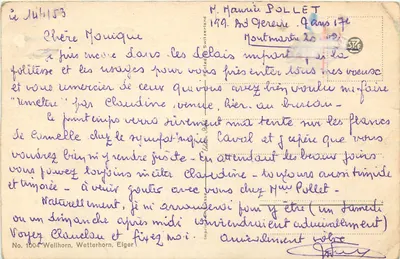 M. Maurice POLLET
159. Bd Bereye. Paris 17e
Montmartre 20-
Le 14/1/53
Chère Monique
Je suis encore dans les délais impartis par la
politesse et les usages pour vous présenter tous mes vœux
et vous remercier de ceux que vous avez bien voulu me faire
"remettre" par Claudine, venue hier au bureau -
Le printemps verra sûrement ma tente sur les flancs
de Cormeille chez le sympathique Laval et j'espère que vous
voudrez bien m'y rendre visite - En attendant les beaux jours
vous pouvez toujours imiter Claudine - toujours aussi timide
et empesée - à venir goûter avec vous chez Mme Pollet -
Naturellement, je m'arrangerai pour y être (un samedi
ou un dimanche après midi conviendraient admirablement)
Voyez Claudine et fixez moi. amicalement vôtre
No. 1004 Wellhorn, Wetterhorn, Eiger